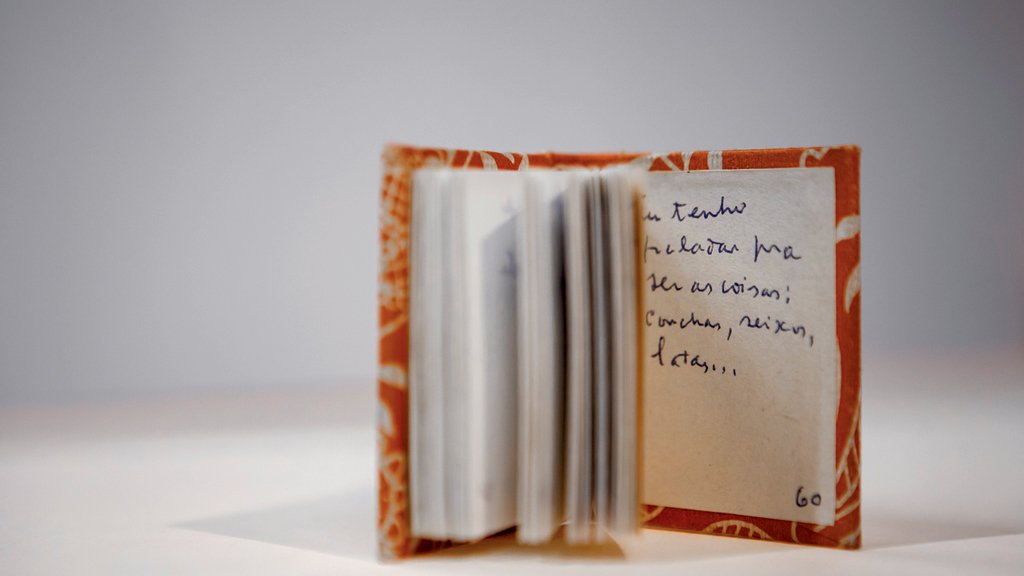 Eu tenho
paladar pra
ser as coisas:
conchas, seixos,
latas...
60